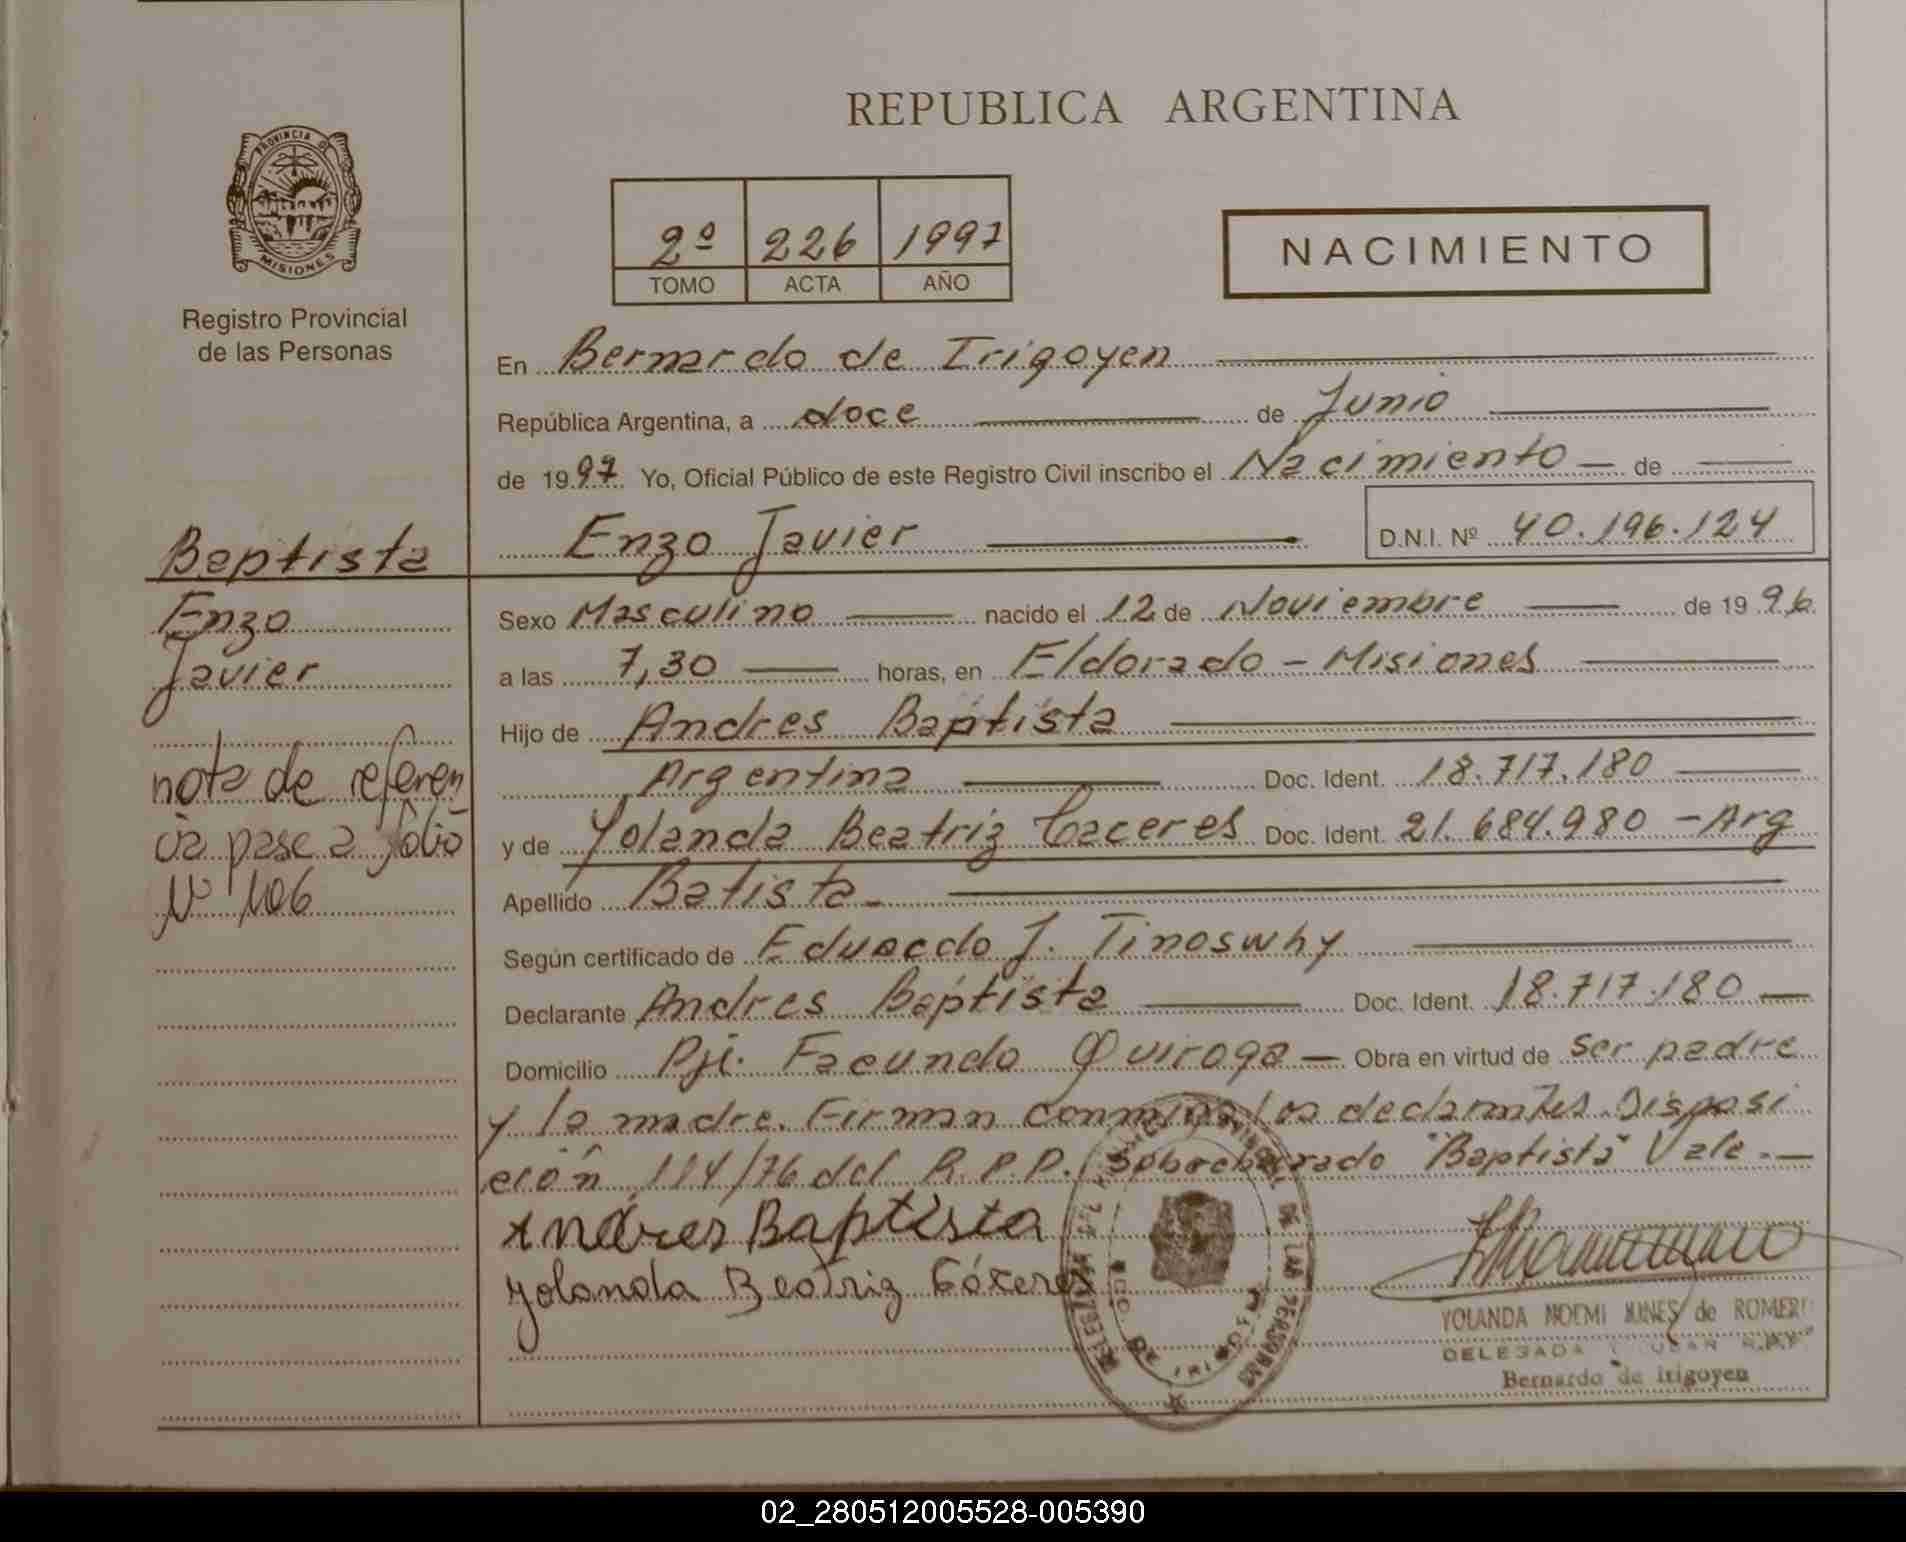 REPUBLICA ARGENTINA
PROVINCIA DE
MISIONES
Registro Provincial
de las Personas
2º 226 1997
TOMO ACTA AÑO
NACIMIENTO
En Bernardo de Irigoyen
República Argentina, a doce de Junio
de 1997 Yo, Oficial Público de este Registro Civil inscribo el Nacimiento de
Enzo Javier D.N.I. Nº 40.196.124
Baptista
Enzo
Javier
nota de referen
cia pase a folio
Nº 106
Sexo Masculino nacido el 12 de Noviembre de 1996
a las 7,30 horas, en Eldorado - Misiones
Hijo de Andres Baptista
Argentina Doc. Ident. 18.717.180
y de Yolanda Beatriz Caceres Doc. Ident. 21.684.980 - Arg
Apellido Batista
Según certificado de Eduardo J. Tinoswhy
Declarante Andres Baptista Doc. Ident. 18.717.180
Domicilio Pje. Facundo Quiroga Obra en virtud de ser padre
y la madre. Firman conmigo los declarantes Disposi
ción 114/76 del R.P.P. Sobreborrado "Baptista" Vale.
Andrés Baptista
Yolanda Beatriz Cáceres
YOLANDA NOEMI de ROMERO
DELEGADA R.P.P.
Bernardo de Irigoyen
02_280512005528-005390